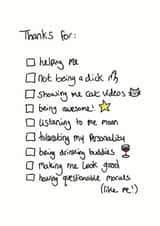 Thanks for:
helping me
not being a dick
Showing me Cat Videos
being awesome!
listening to me moan
tolerating my Personality
being drinking buddies
Making me Look good
having questionable morals
(like me!)